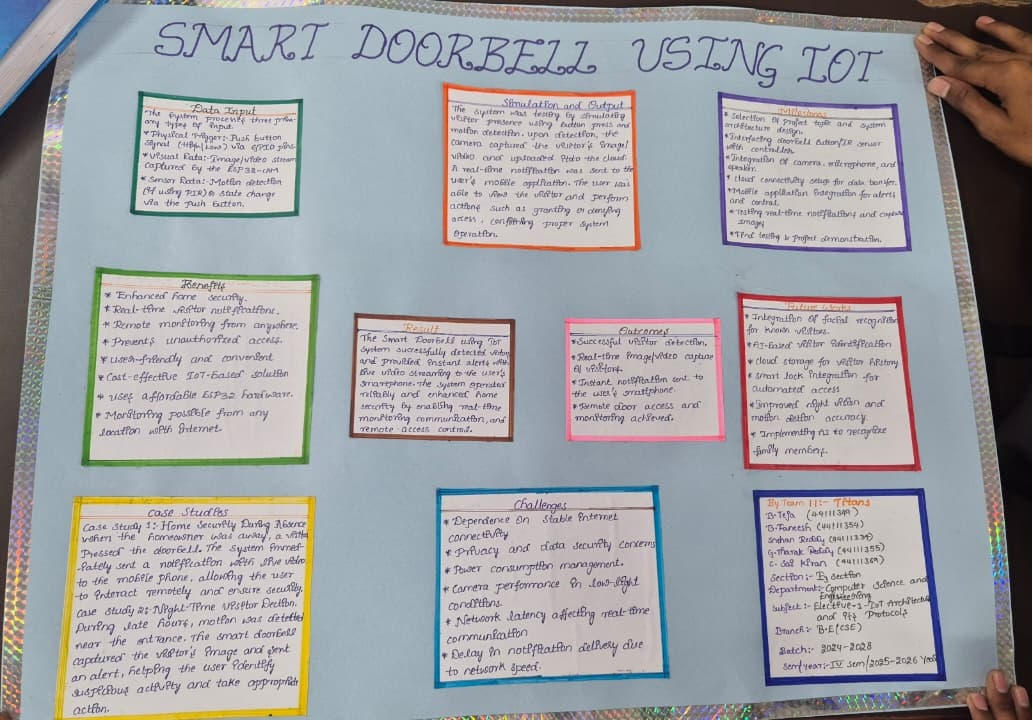 SMART DOORBELL USING IOT
Data Input
The system processes three prim-
ary types of input.
* Physical Trigger:- Push button
signal (High/Low) via GPIO pins.
* Visual Data:- Image/video stream
captured by the ESP32-CAM
* Sensor Data:- Motion detection
(if using PIR) & state change
via the push button.
Simulation and Output
The system was testing by simulating
visitor presence using button press and
motion detection. upon detection, the
camera captured the visitor's image/
video and uploaded into the cloud.
A real-time notification was sent to the
user's mobile application. The user was
able to view the visitor and perform
actions such as granting or denying
access, confirming proper system
operation.
Milestones
* Selection of project topic and system
architecture design.
* Interfacing doorbell button/IR sensor
with controller.
* Integration of camera, microphone, and
speaker.
* cloud connectivity setup for data transfer.
* Mobile application integration for alerts
and control.
* Testing real-time notifications and capture
images
* Final testing & project demonstration.
Benefits
* Enhanced home security.
* Real-time visitor notifications.
* Remote monitoring from anywhere.
* Prevents unauthorized access.
* user-friendly and convenient
* Cost-effective IoT-based solution
* uses affordable ESP32 hardware.
* Monitoring possible from any
location with internet.
Result
The Smart Doorbell using IoT
system successfully detected visitors
and provided instant alerts with
live video streaming to the user's
smartphone. The system operated
reliably and enhanced home
security by enabling real-time
monitoring communication, and
remote access control.
Outcomes
* Successful visitor detection.
* Real-time image/video capture
of visitors.
* Instant notification sent to
the user's smartphone.
* Remote door access and
monitoring achieved.
Future Works
* Integration of facial recognition
for known visitors.
* AI-based visitor identification
* cloud storage for visitor history
* smart lock integration for
automated access
* improved night vision and
motion detion accuracy.
* Implementing AI to recognize
family members.
Case Studies
Case Study 1:- Home Security During Absence
when the homeowner was away, a visitor
Pressed the doorbell. The system immed-
iately sent a notification with live video
to the mobile phone, allowing the user
to interact remotely and ensure security.
case study 2:- Night-Time visitor Dection.
During late hours, motion was detected
near the entrance. The smart doorbell
capdured the visitor's image and sent
an alert, helping the user identify
suspicious activity and take appropriate
action.
Challenges
* Dependence on stable internet
connectivity
* Privacy and data security concerns
* Power consumption management.
* Camera performance in low-light
conditions.
* Network latency affecting real-time
communication
* Delay in notification delivery due
to network speed.
By Team 11:- Titans
B. Teja
B. Faneesh (44111354)
Reddy
G. Tharak Reddy (44111355)
C. Sai Kiran (44111369)
Section:- section
Department:- Computer science and
Engineering
Subject:- Elective-1-IoT Architecture
and its Protocols
Branch:- B.E(CSE)
Batch:- 2024-2028
Sem/year:- IV sem/2025-2026 Year